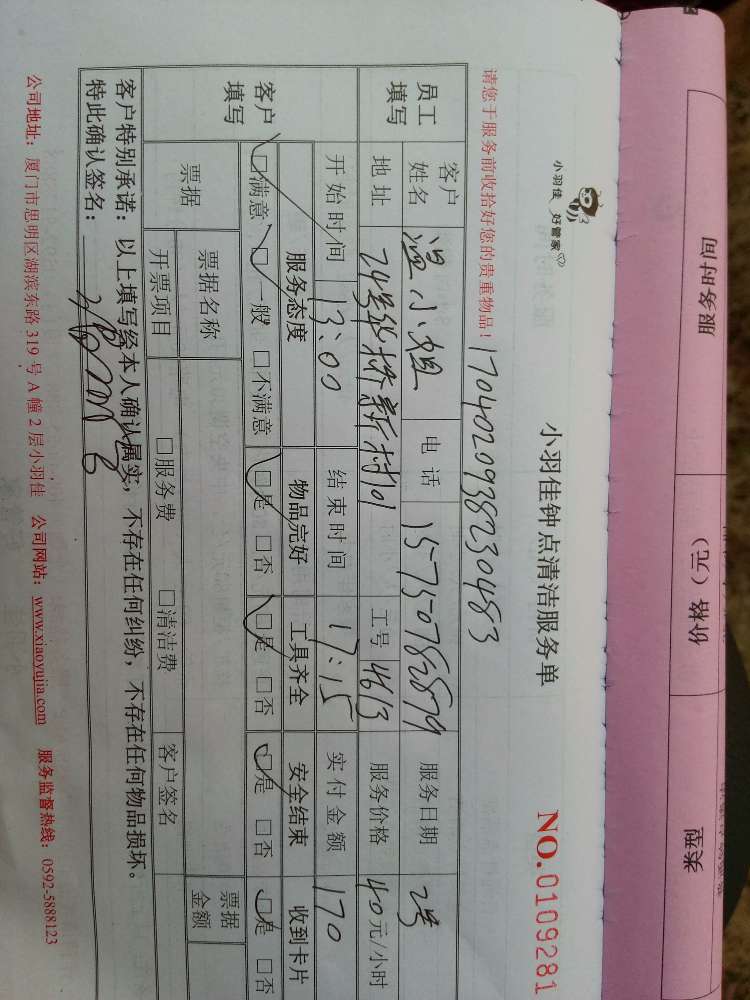 服务时间 价格（元） 类型
小羽佳 好管家
小羽佳钟点清洁服务单
NO.0109281
请您于服务前收拾好您的贵重物品！
1704020938230483
员工填写 客户姓名 温小姐 电话 15750782879 服务日期 2号
地址 新村 工号 4613 服务价格 40元/小时
开始时间 13:00 结束时间 17:15 实付金额 170
客户填写 服务态度 物品完好 工具齐全 安全结束 收到卡片
□满意 □一般 □不满意 □是 □否 □是 □否 □是 □否 □是 □否
票据 票据名称 票据金额
开票项目 □服务费 □清洁费 客户签名
客户特别承诺：以上填写经本人确认属实，不存在任何纠纷，不存在任何物品损坏。
特此确认签名：
公司地址：厦门市思明区湖滨东路 319 号 A 幢 2 层小羽佳 公司网站：www.xiaoyujia.com 服务监督热线：0592-5888123